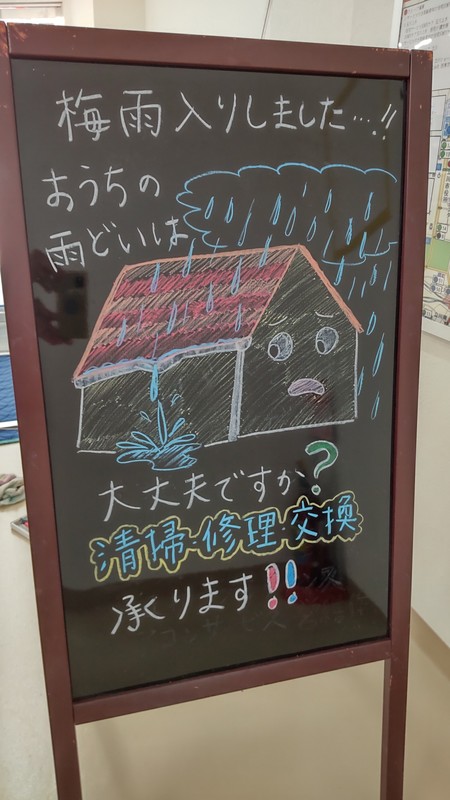 梅雨入りしました…!!
おうちの
雨どいは
大丈夫ですか?
清掃・修理・交換
承ります!!